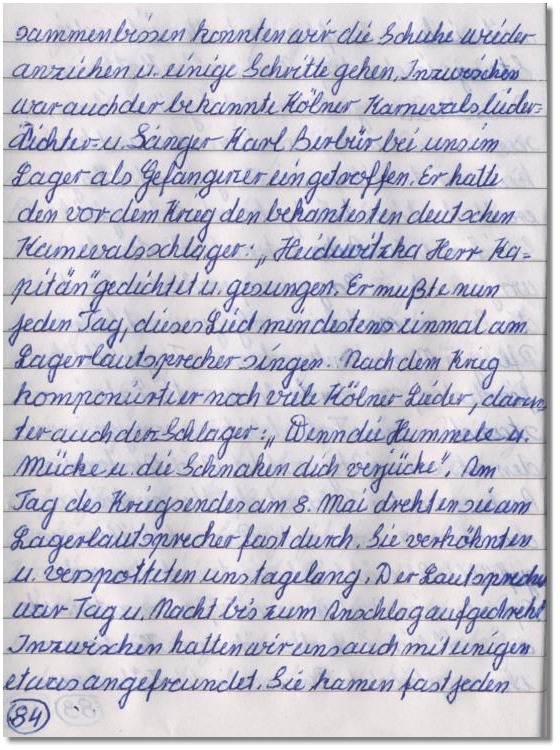 sammenbissen konnten wir die Schuhe wieder
anziehen u. einige Schritte gehen. Inzwischen
war auch der bekannte Kölner Karnevalslieder=
Dichter- u. Sänger Karl Berbür bei uns im
Lager als Gefangener eingetroffen. Er hatte
den vor dem Krieg den bekantesten deutschen
Karnevalsschlager: „Heidewitzka Herr Ka=
pitän" gedichtet u. gesungen. Er mußte nun
jeden Tag, dieses Lied mindestens einmal am
Lagerlautsprecher singen. Nach dem Krieg
komponiert er noch viele Kölner Lieder, darun=
ter auch den Schlager: „Denn die Hummele u.
Mücke u. die Schnaken dich verjücke". Am
Tag des Kriegsendes am 8. Mai drehten sie am
Lagerlautsprecher fast durch. Sie verhöhnten
u. verspotteten uns tagelang. Der Lautsprecher
war Tag u. Nacht bis zum Anschlag aufgedreht
Inzwischen hatten wir uns auch mit einigen
etwas angefreundet. Sie kamen fast jeden
84